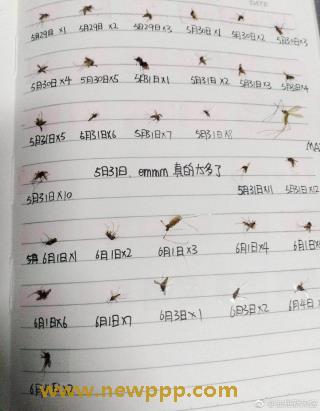 DATE
5月29日×1 5月29日×2 5月29日×3 5月30日×1 5月30日×2 5月30日×3
5月30日×4 5月30日×5 5月31日×1 5月31日×2 5月31日×3 5月31日×4
5月31日×5 5月31日×6 5月31日×7 5月31日×8
MAX
5月31日×10 5月31日, emmm 真的太多了 5月31日×11 5月31日×12
6月1日×1 6月1日×2 6月1日×3 6月1日×4 6月1日
6月1日×6 6月1日×7 6月3日×1 6月3日×2 6月4日
www.newppp.com